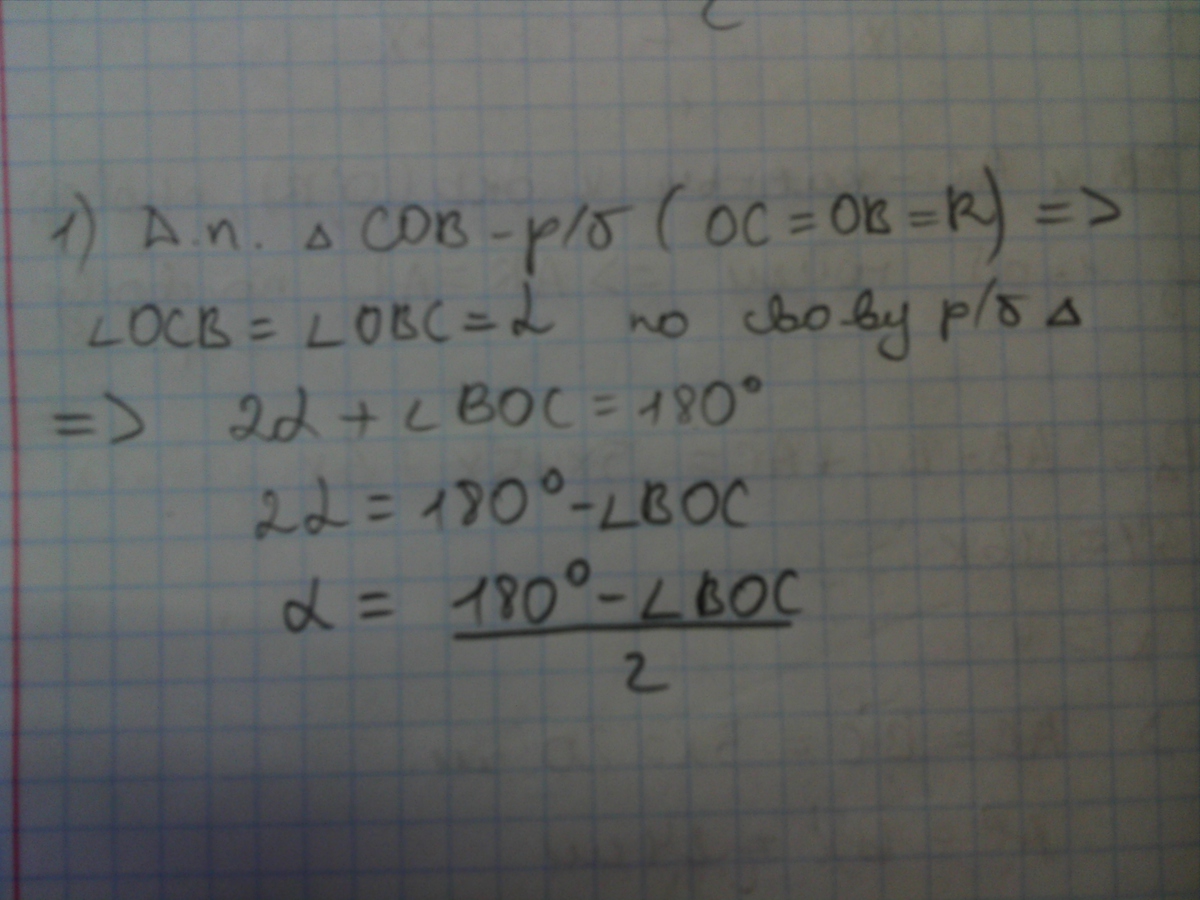 1) Д.п. △ COB - р/б ( OC = OB = R) =>
∠OCB = ∠OBC = α по сво-ву р/б △
=> 2α + ∠BOC = 180°
2α = 180° - ∠BOC
α = 180° - ∠BOC
2